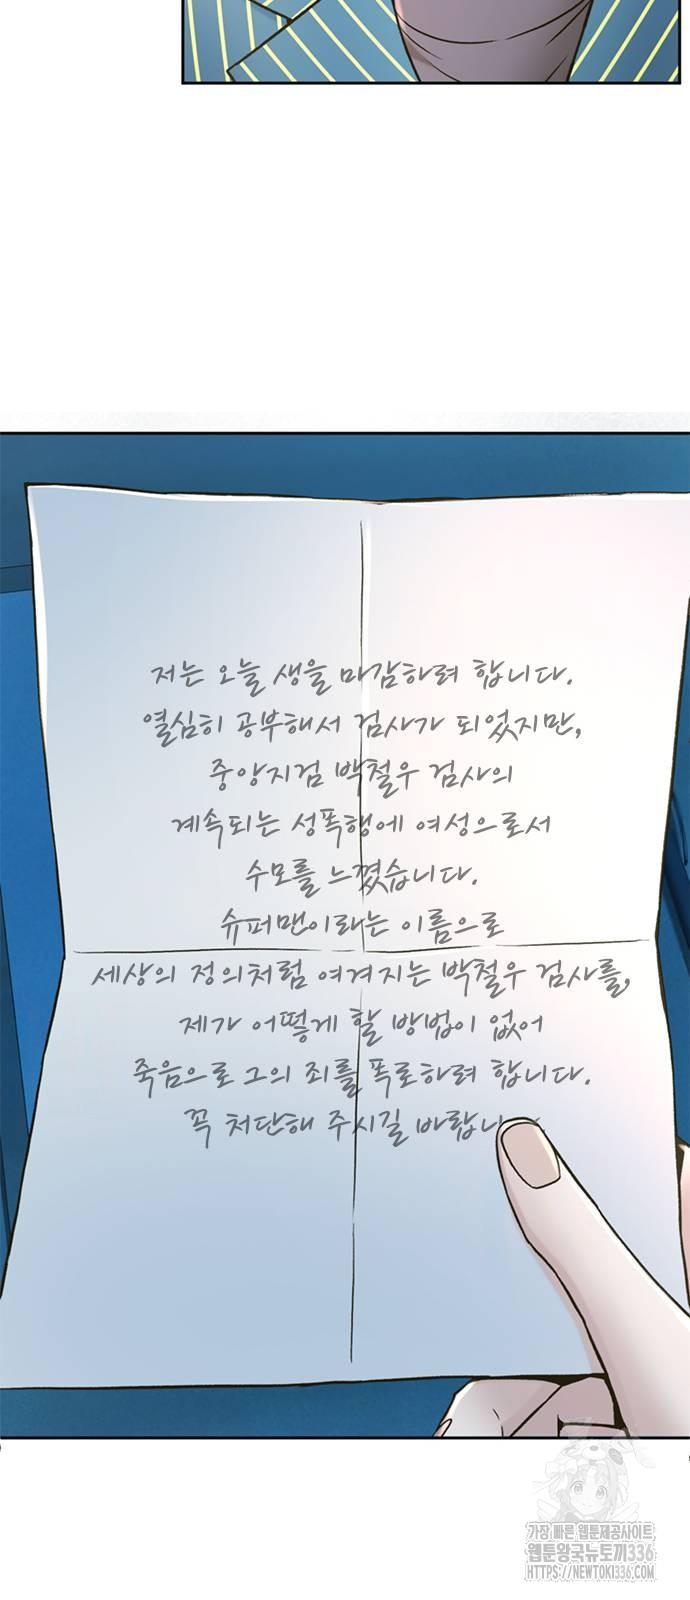 저는 오늘 생을 마감하려 합니다.
열심히 공부해서 검사가 되었지만,
중앙지검 박철우 검사의
계속되는 성폭행에 여성으로서
수모를 느꼈습니다.
슈퍼맨이라는 이름으로
세상의 정의처럼 여겨지는 박철우 검사를,
제가 어떻게 할 방법이 없어
죽음으로 그의 죄를 폭로하려 합니다.
꼭 처단해 주시길 바랍니
가장 빠른 웹툰제공사이트
웹툰왕국뉴토끼336
HTTPS://NEWTOKI336.COM